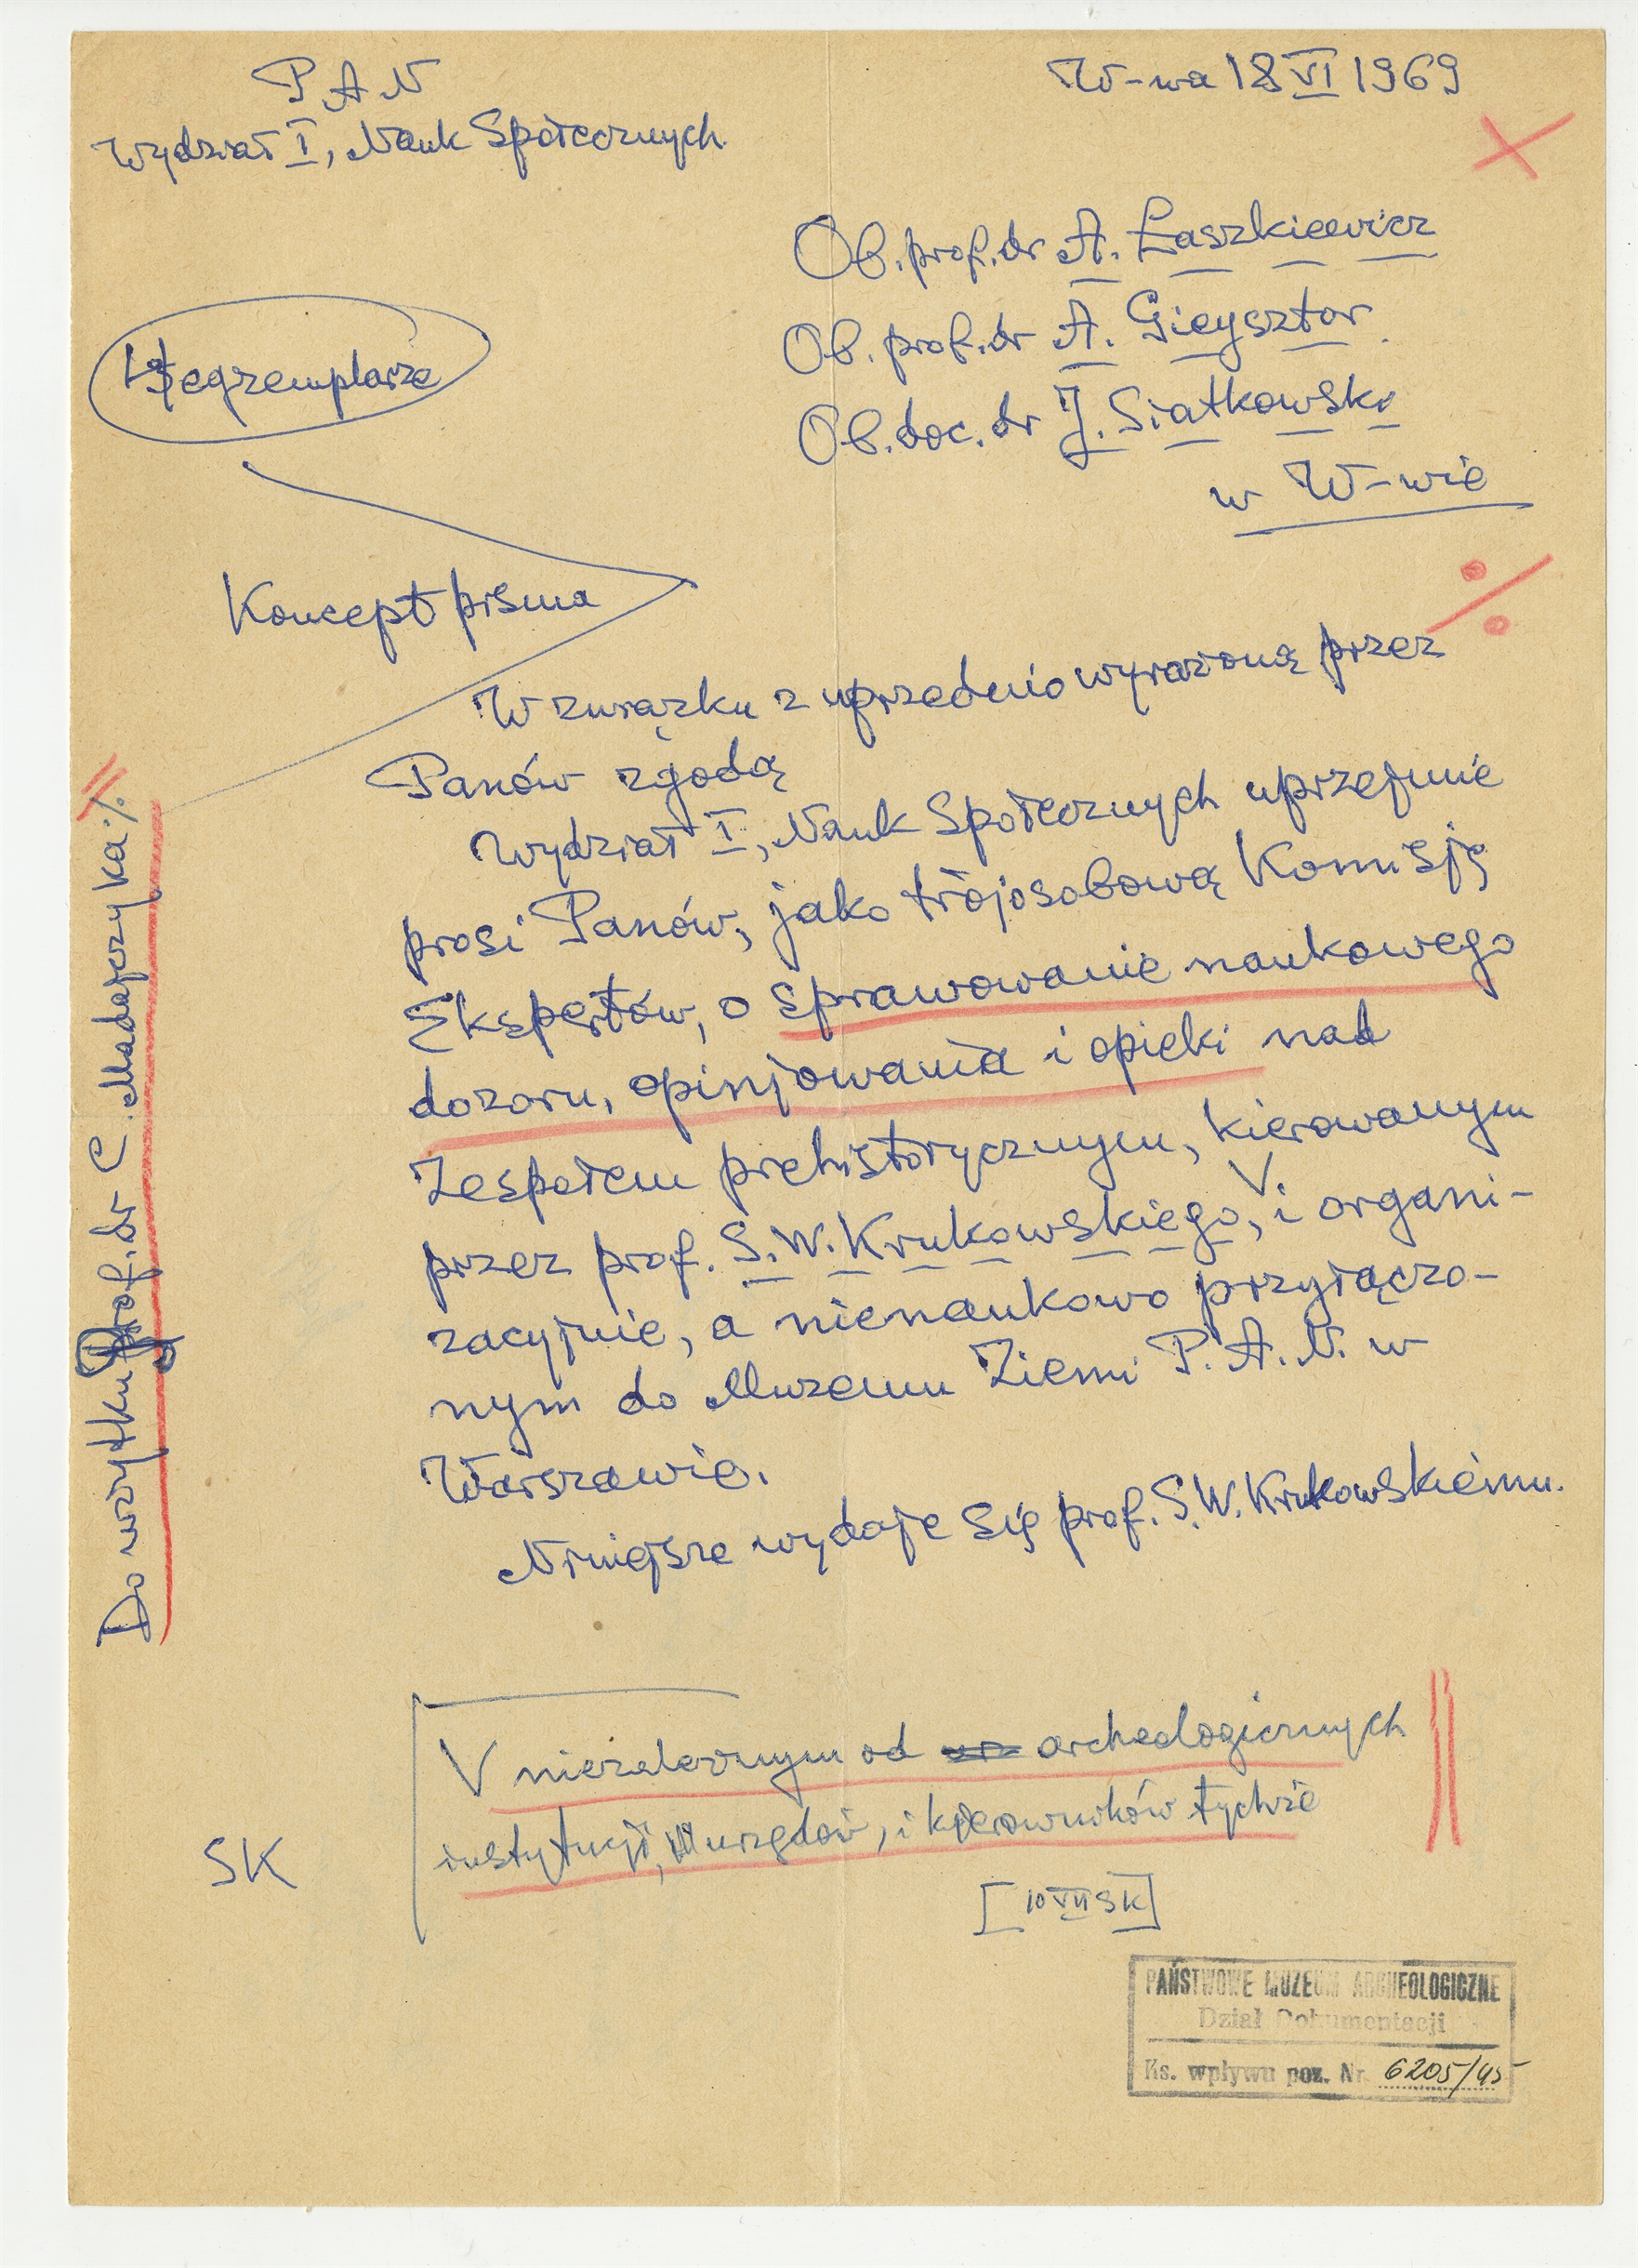 P A N
W-wa 18 VI 1969
Wydział I, Nauk Społecznych
Ob. prof. dr A. Łaszkiewicz
Ob. prof. dr A. Gieysztor
Ob. doc. dr J. Siatkowski
w W-wie
egzemplarze
Koncept pisma
W związku z uprzednio wyrażoną przez
Panów zgodą
Wydział I, Nauk Społecznych uprzejmie
prosi Panów, jako trójosobową Komisję
Ekspertów, o sprawowanie naukowego
dozoru, opinjowania i opieki nad
Zespołem prehistorycznym, kierowanym
przez prof. S.W. Krukowskiego, V i organi-
zacyjnie, a nienaukowo przyłączo-
nym do Muzeum Ziemi P.A.N. w
Warszawie.
Niniejsze wydaje się prof. S.W. Krukowskiemu.
Do użytku prof. dr C. Madajczyka %
V niezależnym od archeologicznych
instytucji, urzędów, i kierowników tychże
SK
[10 VII SK]
PAŃSTWOWE MUZEUM ARCHEOLOGICZNE
Dział Dokumentacji
Ks. wpływu poz. Nr. 6205/45